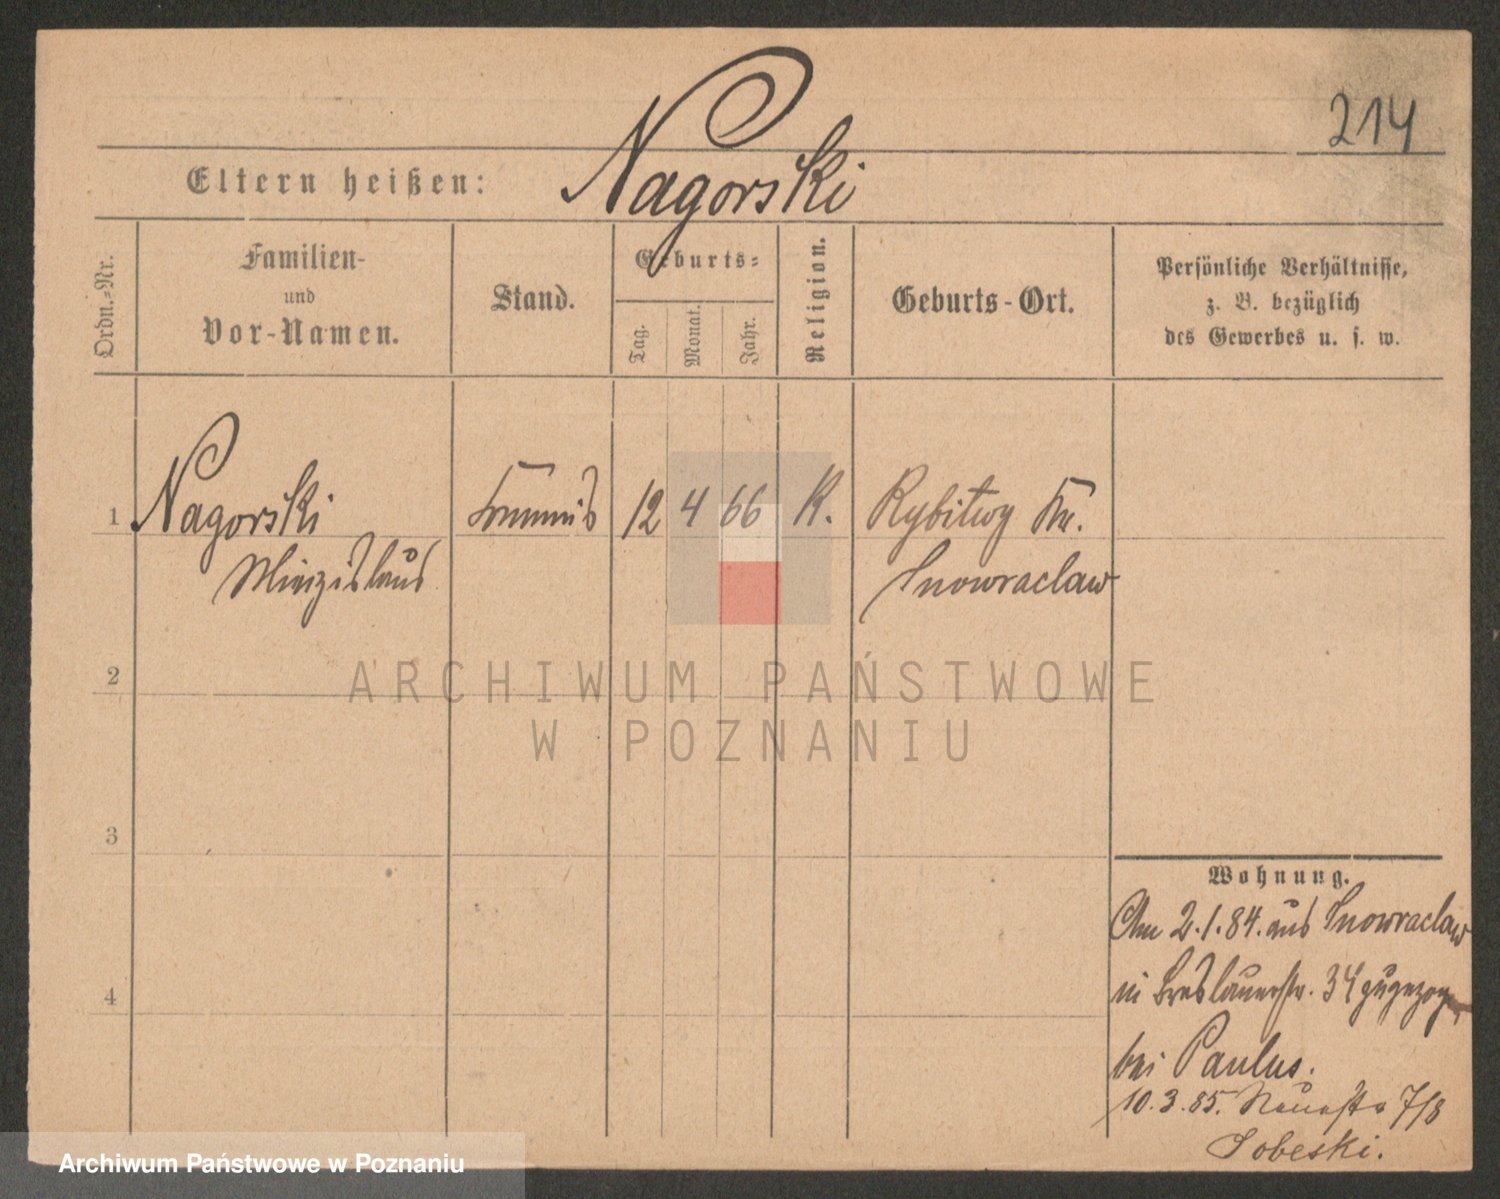 214
Eltern heißen: Nagorski
Ordn.-Nr.
Familien-
und
Vor-Namen.
Stand.
Geburts-
Tag.
Monat.
Jahr.
Religion.
Geburts-Ort.
Persönliche Verhältnisse,
z. B. bezüglich
des Gewerbes u. s. w.
1 Nagorski Commis 12 4 66 K. Rybitwy Kr.
Miezislaus Inowraclaw
2
ARCHIWUM PAŃSTWOWE
W POZNANIU
3
Wohnung.
Am 2.1.84. aus Inowraclaw
in Breslauerstr. 34 zugezogen
4
bei Paulus.
10.3.85. Neuestr 7/8
Sobeski.
Archiwum Państwowe w Poznaniu